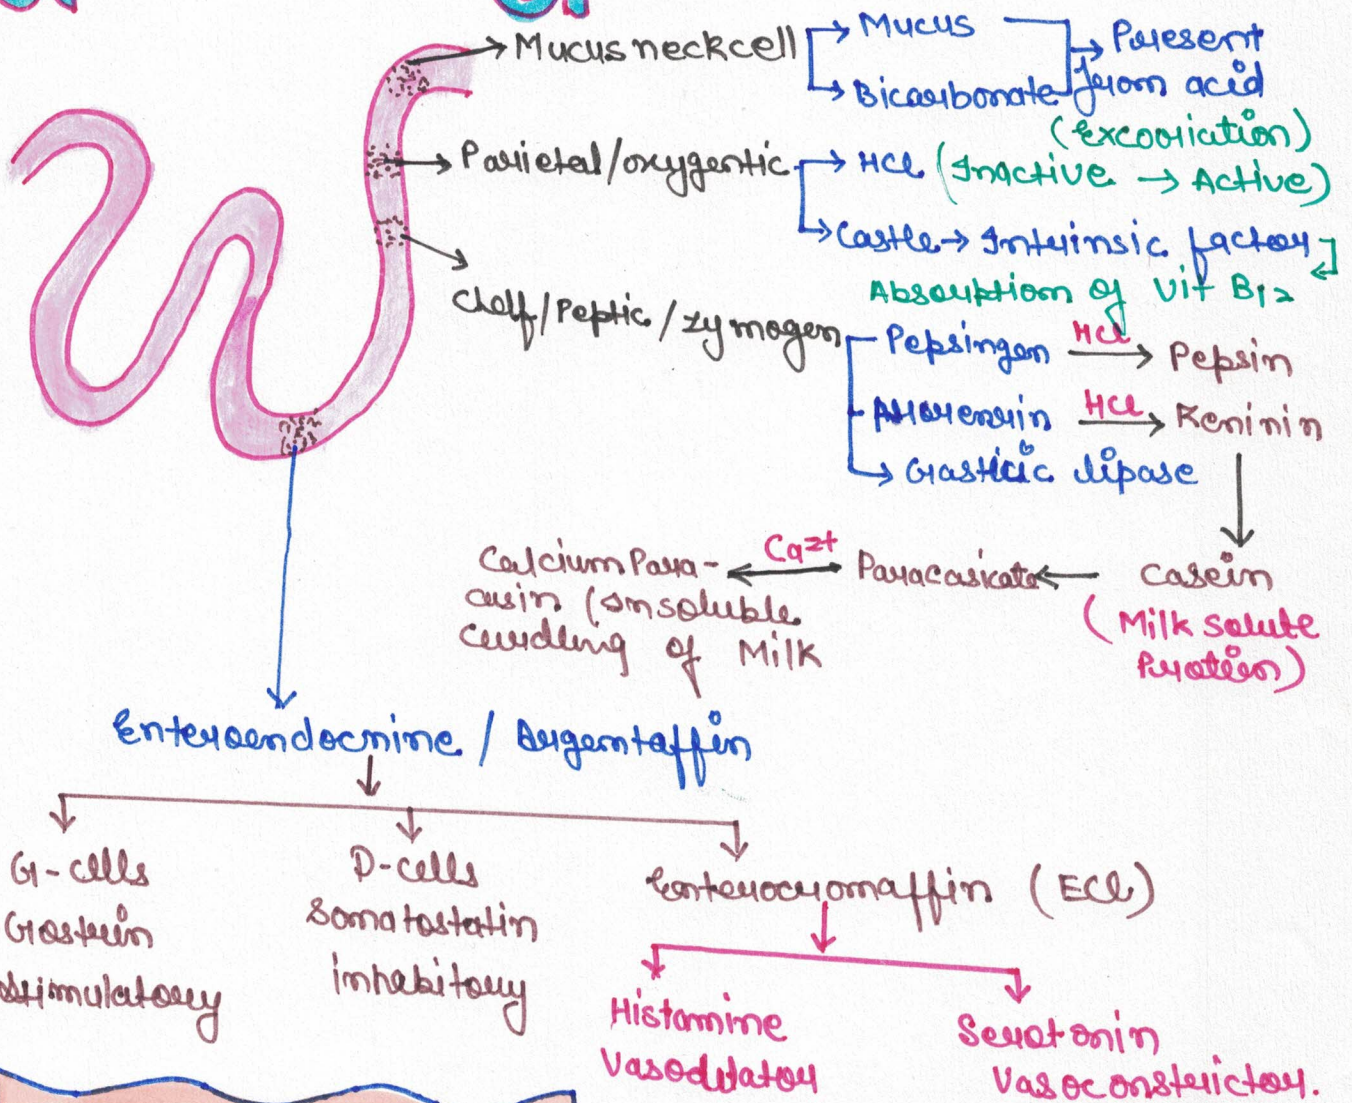 Mucus neck cell
Mucus
Bicarbonate
Present
from acid
(Excoriation)
Parietal/oxygentic
HCl (Inactive → Active)
Castle → Intrinsic factor
Absorption of Vit B12
Cheif/Peptic/zymogen
Pepsingen HCl → Pepsin
HCl → Reninin
Gastric lipase
Casein
(Milk solute
Protein)
Paracasicate
Ca2+
Calcium Para-
casin (Insoluble
curdling of Milk
Enteroendocrine / Argentaffin
G-cells
Gastrin
stimulatory
D-cells
Somatostatin
inhabitory
Enterocromaffin (ECl)
Histamine
Vasodilator
Serotonin
Vasoconstrictor.